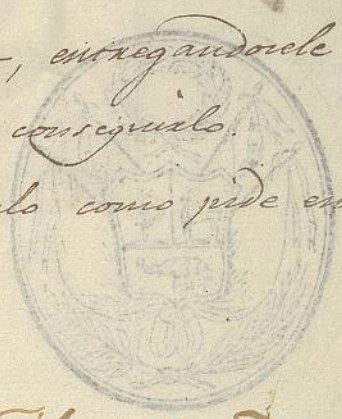 , entregandosele
conseguirlo.
lo como pide en